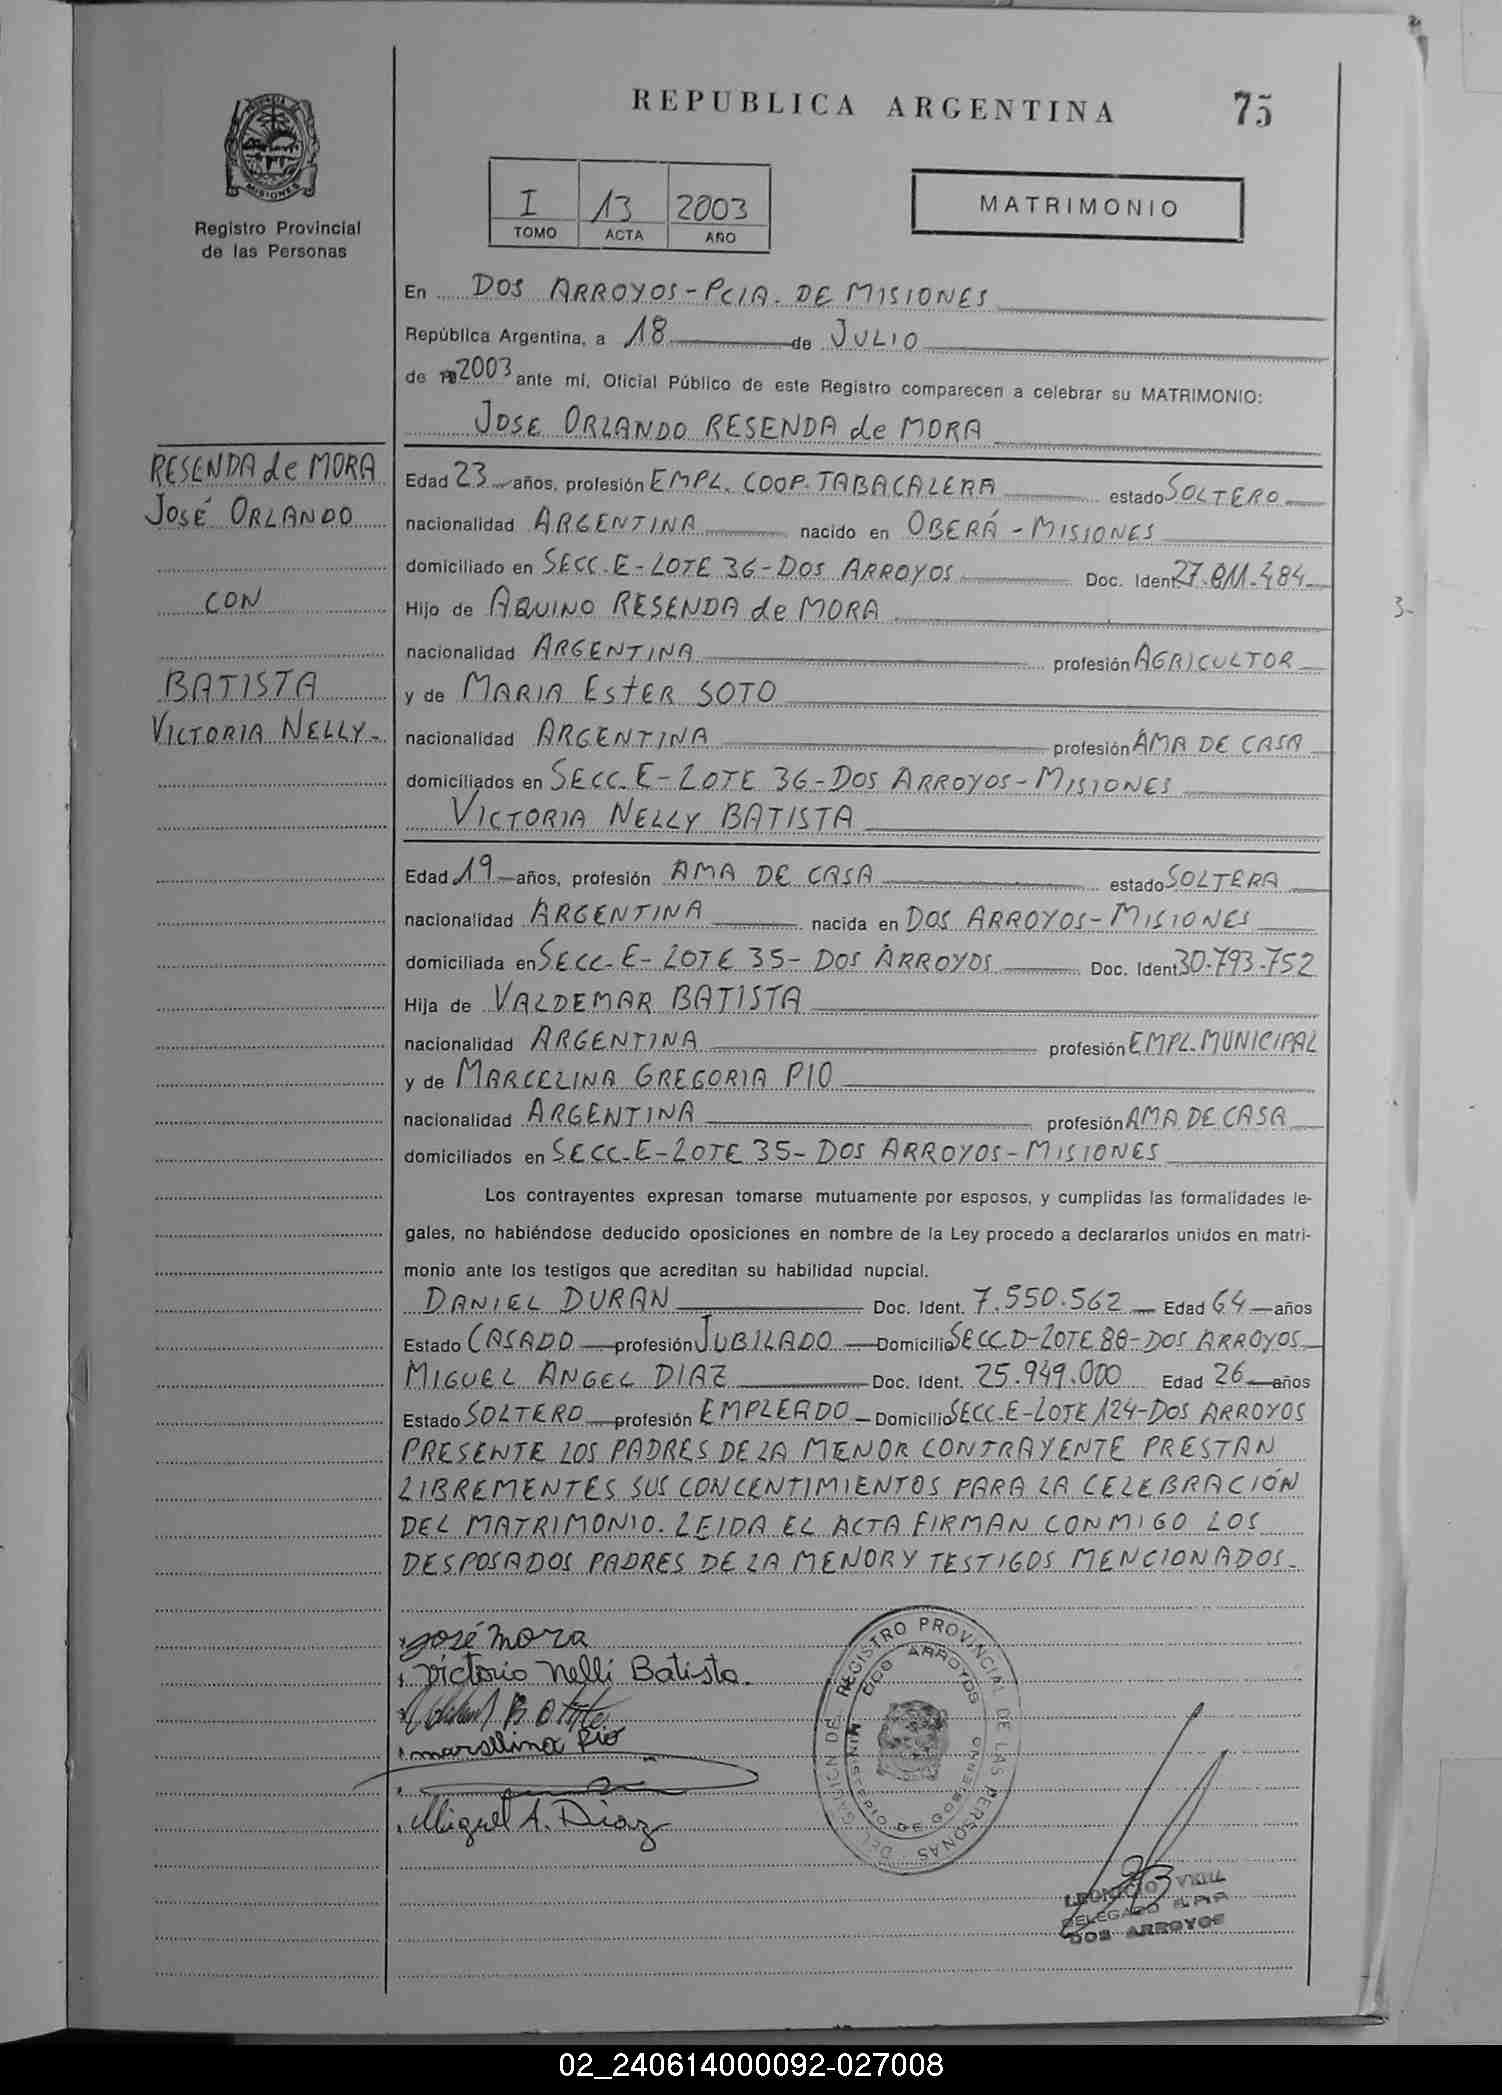 REPUBLICA ARGENTINA
75
PROVINCIA DE
MISIONES
Registro Provincial
de las Personas
I 13 2003
TOMO ACTA AÑO
MATRIMONIO
En DOS ARROYOS-PCIA. DE MISIONES
República Argentina, a 18 de JULIO
de 2003 ante mí, Oficial Público de este Registro comparecen a celebrar su MATRIMONIO:
JOSE ORLANDO RESENDA de MORA
RESENDA de MORA
JOSÉ ORLANDO
CON
BATISTA
VICTORIA NELLY-
Edad 23 años, profesión EMPL. COOP. TABACALERA estado SOLTERO
nacionalidad ARGENTINA nacido en OBERÁ - MISIONES
domiciliado en SECC-E-LOTE 36-DOS ARROYOS Doc. Ident
Hijo de AQUINO RESENDA de MORA
nacionalidad ARGENTINA profesión AGRICULTOR
y de MARIA ESTER SOTO
nacionalidad ARGENTINA profesión AMA DE CASA
domiciliados en SECC-E-LOTE 36-DOS ARROYOS-MISIONES
VICTORIA NELLY BATISTA
Edad 19 años, profesión AMA DE CASA estado SOLTERA
nacionalidad ARGENTINA nacida en DOS ARROYOS-MISIONES
domiciliada en SECC-E-LOTE 35-DOS ARROYOS Doc. Ident 30.793.752
Hija de VALDEMAR BATISTA
nacionalidad ARGENTINA profesión EMPL. MUNICIPAL
y de MARCELINA GREGORIA PIO
nacionalidad ARGENTINA profesión AMA DE CASA
domiciliados en SECC-E-LOTE 35-DOS ARROYOS-MISIONES
Los contrayentes expresan tomarse mutuamente por esposos, y cumplidas las formalidades le-
gales, no habiéndose deducido oposiciones en nombre de la Ley procedo a declararlos unidos en matri-
monio ante los testigos que acreditan su habilidad nupcial.
DANIEL DURAN Doc. Ident. 7.550.562 Edad 64 años
Estado CASADO profesión JUBILADO Domicilio SECC.D-LOTE 88-DOS ARROYOS
MIGUEL ANGEL DIAZ Doc. Ident. 25.949.000 Edad 26 años
Estado SOLTERO profesión EMPLEADO Domicilio SECC.E-LOTE 124-DOS ARROYOS
PRESENTE LOS PADRES DE LA MENOR CONTRAYENTE PRESTAN
LIBREMENTES SUS CONCENTIMIENTOS PARA LA CELEBRACIÓN
DEL MATRIMONIO. LEIDA EL ACTA FIRMAN CONMIGO LOS
DESPOSADOS PADRES DE LA MENOR Y TESTIGOS MENCIONADOS-
José Mora
Victorio Nelli Batista.
marselina Pio
Miguel A. Diaz
REGISTRO PROVINCIAL DE LAS PERSONAS
DOS ARROYOS
MINISTERIO DE GOBIERNO
DELEGADO
DOS ARROYOS
02_240614000092-027008